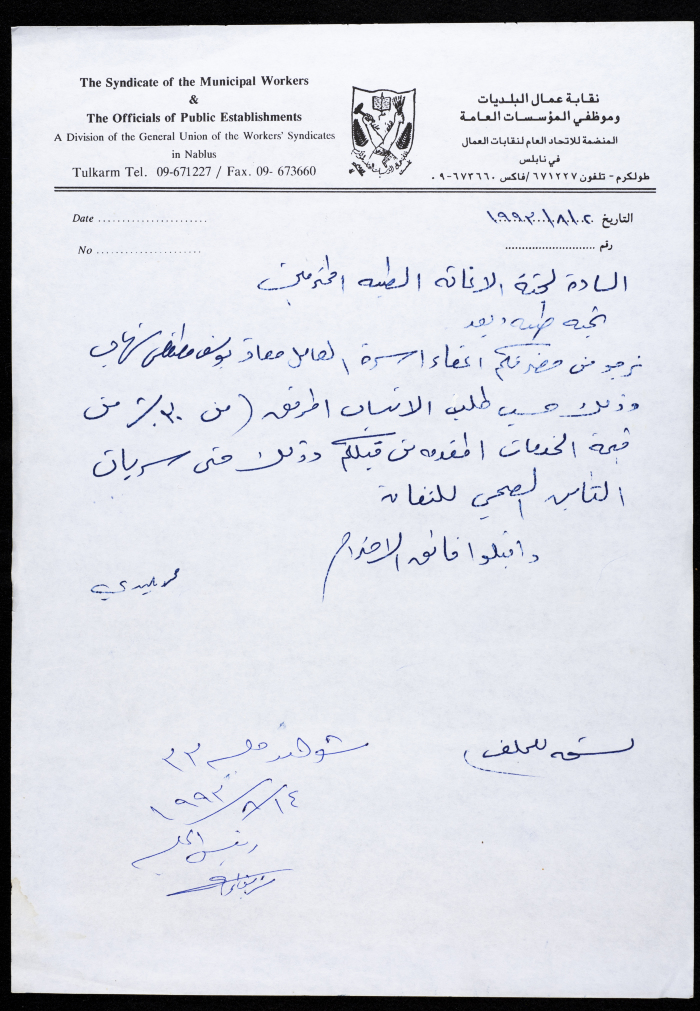 The Syndicate of the Municipal Workers
&
The Officials of Public Establishments
A Division of the General Union of the Workers' Syndicates
in Nablus
Tulkarm Tel. 09-671227 / Fax. 09- 673660
نقابة عمال البلديات
وموظفي المؤسسات العامة
المنضمة للاتحاد العام لنقابات العمال
في نابلس
طولكرم - تلفون ٦٧١٢٢٧ /فاكس ٦٧٣٦٦٠-٠٩
Date ......................
No .....................
التاريخ ١٩٩٣/٨/٢
رقم ...........................
السادة لجنة الاغاثه الطبيه المحترمين
تحيه طيبه وبعد
نرجو من حضرتكم اعفاء اسرة العامل معاذ يوسف مصطفى
وذلك حسب طلب الانتساب المرفق (من ٣٠٪ من
قيمة الخدمات المقدمه من قبلكم وذلك حتى سريان
التأمين الصحي للنقابة
واقبلوا فائق الاحترام
نسخه للملف
٣٣
١٩٩٣/٨/١٤
رئيس